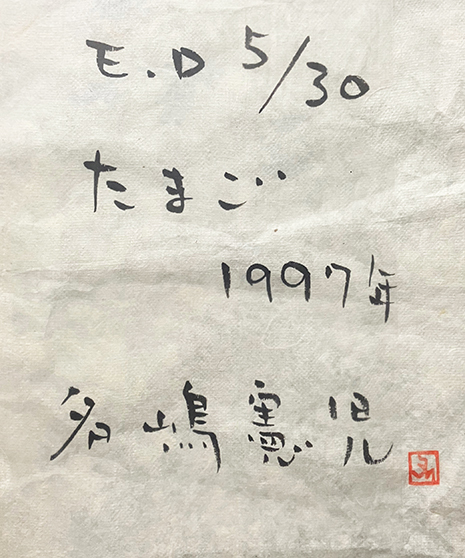 E.D 5/30
たまご
1997年
多嶋憲児